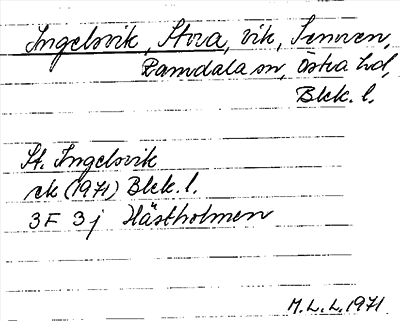 Ingelsvik, Stora, vik, Senoren,
Ramdala sn, Östra hd,
Blek. l.
St. Ingelsvik
ek (1971) Blek. l.
3F 3j Hästholmen
M.L.L. 1971